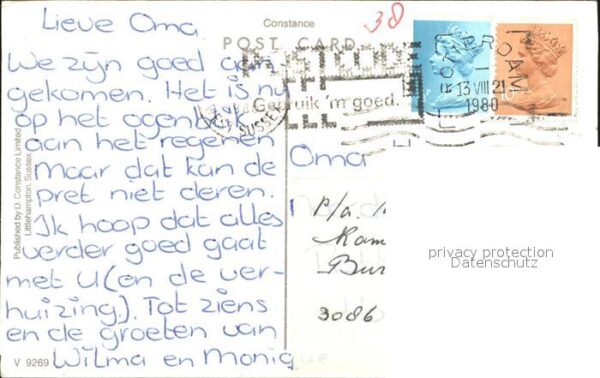 Lieve Oma.
We zijn goed aan-
gekomen. Het is nu
op het ogenblik
aan het regenen
maar dat kan de
pret niet deren.
Ik hoop dat alles
verder goed gaat
met U (en de ver-
huizing). Tot ziens
en de groeten van
Wilma en Monique
V 9269
Published by D. Constance Limited
Littlehampton, Sussex
Constance
POST CARD
38
POSTCODE
Gebruik 'm goed.
SUSSEX
13 VIII 21
1980
Oma H
P/a.
Kam
Bur
3086
privacy protection
Datenschutz